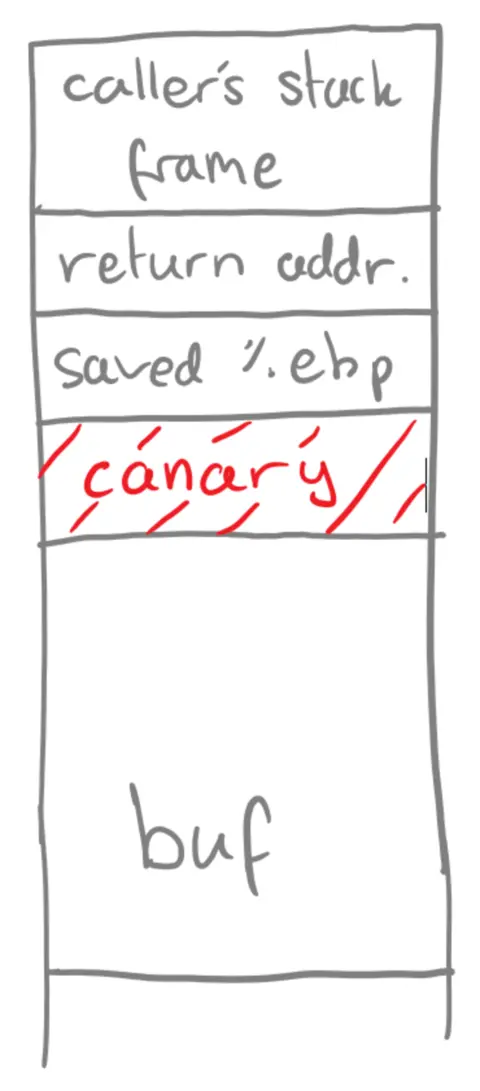 caller's stack
frame
return addr.
saved %ebp
canary
buf